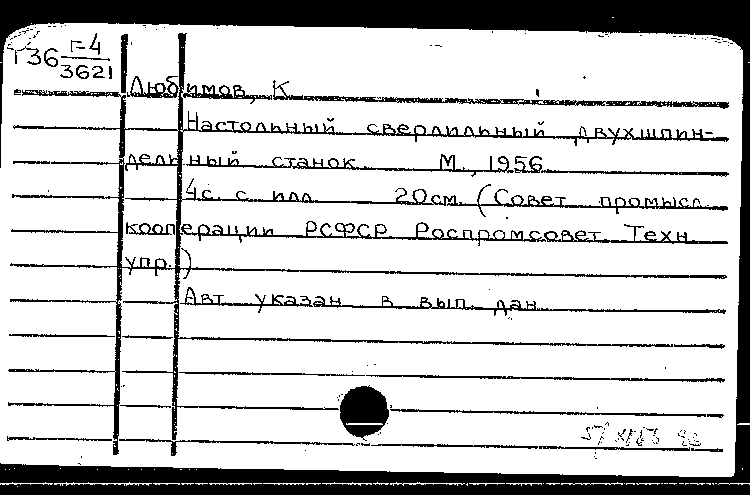 Г36 Г-4
3621
Любимов, К
Настольный сверлильный двухшпин-
дельный станок. М., 1956
4с. с илл. 20см. (Совет промысл.
кооперации РСФСР. Роспромсовет. Техн.
упр.)
Авт. указан в вып. дан.